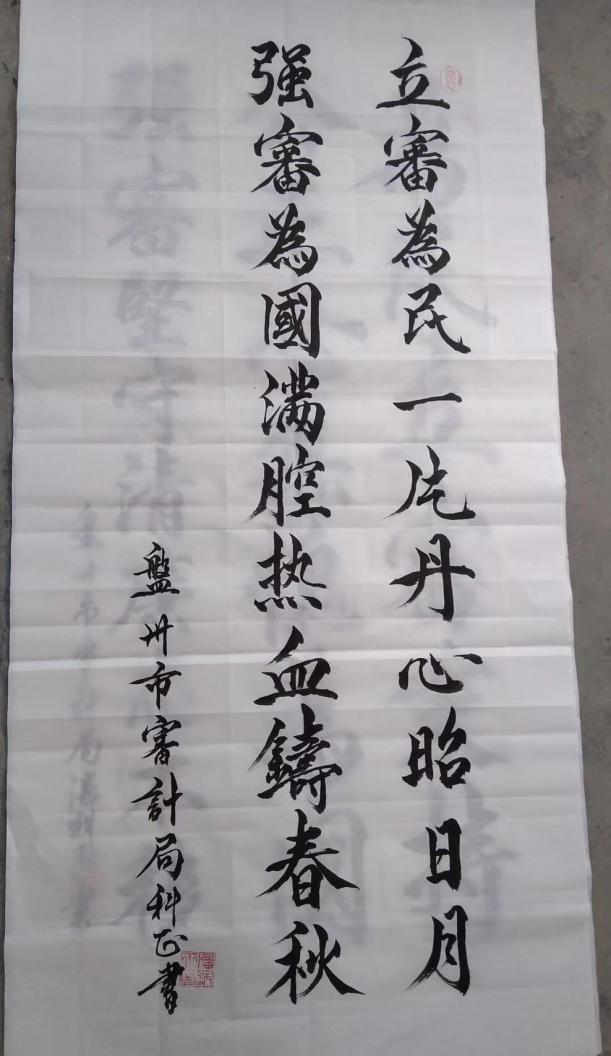 立審為民一片丹心昭日月
强審為國滿腔热血鑄春秋
盤州市審計局科正書